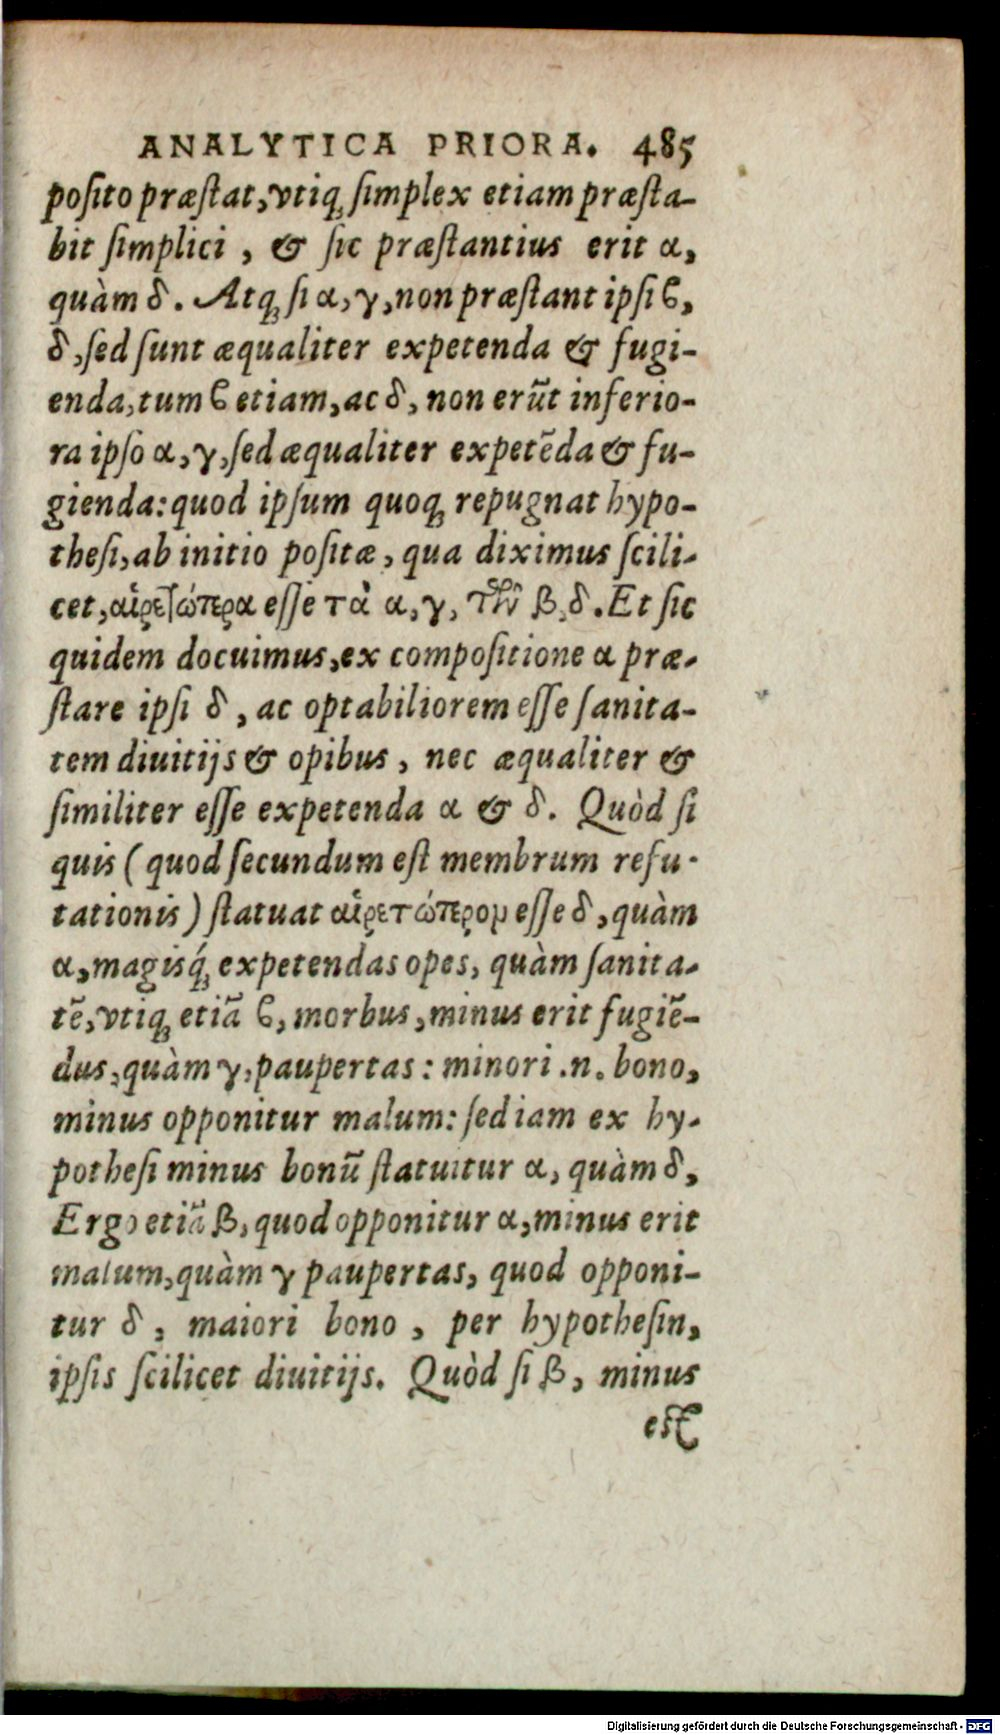 ANALYTICA PRIORA. 485
posito præstat, vtiq; simplex etiam præsta-
bit simplici, & sic præstantius erit α,
quàm δ. Atq; si α, γ, non præstant ipsi ϐ,
δ, sed sunt æqualiter expetenda & fugi-
enda, tum ϐ etiam, ac δ, non erũt inferio-
ra ipso α, γ, sed æqualiter expetẽda & fu-
gienda: quod ipsum quoq; repugnat hypo-
thesi, ab initio positæ, qua diximus scili-
cet, αἱρετώτερα esse τὰ α, γ, τῶν β, δ. Et sic
quidem docuimus, ex compositione α præ-
stare ipsi δ, ac optabiliorem esse sanita-
tem diuitijs & opibus, nec æqualiter &
similiter esse expetenda α & δ. Quòd si
quis (quod secundum est membrum refu-
tationis) statuat αἱρετώτερον esse δ, quàm
α, magisq́; expetendas opes, quàm sanita-
tẽ, vtiq; etiã ϐ, morbus, minus erit fugiẽ-
dus, quàm γ, paupertas: minori .n. bono,
minus opponitur malum: sed iam ex hy-
pothesi minus bonũ statuitur α, quàm δ,
Ergo etiã β, quod opponitur α, minus erit
malum, quàm γ paupertas, quod opponi-
tur δ, maiori bono, per hypothesin,
ipsis scilicet diuitijs. Quòd si β, minus
est
Digitalisierung gefördert durch die Deutsche Forschungsgemeinschaft - DFG